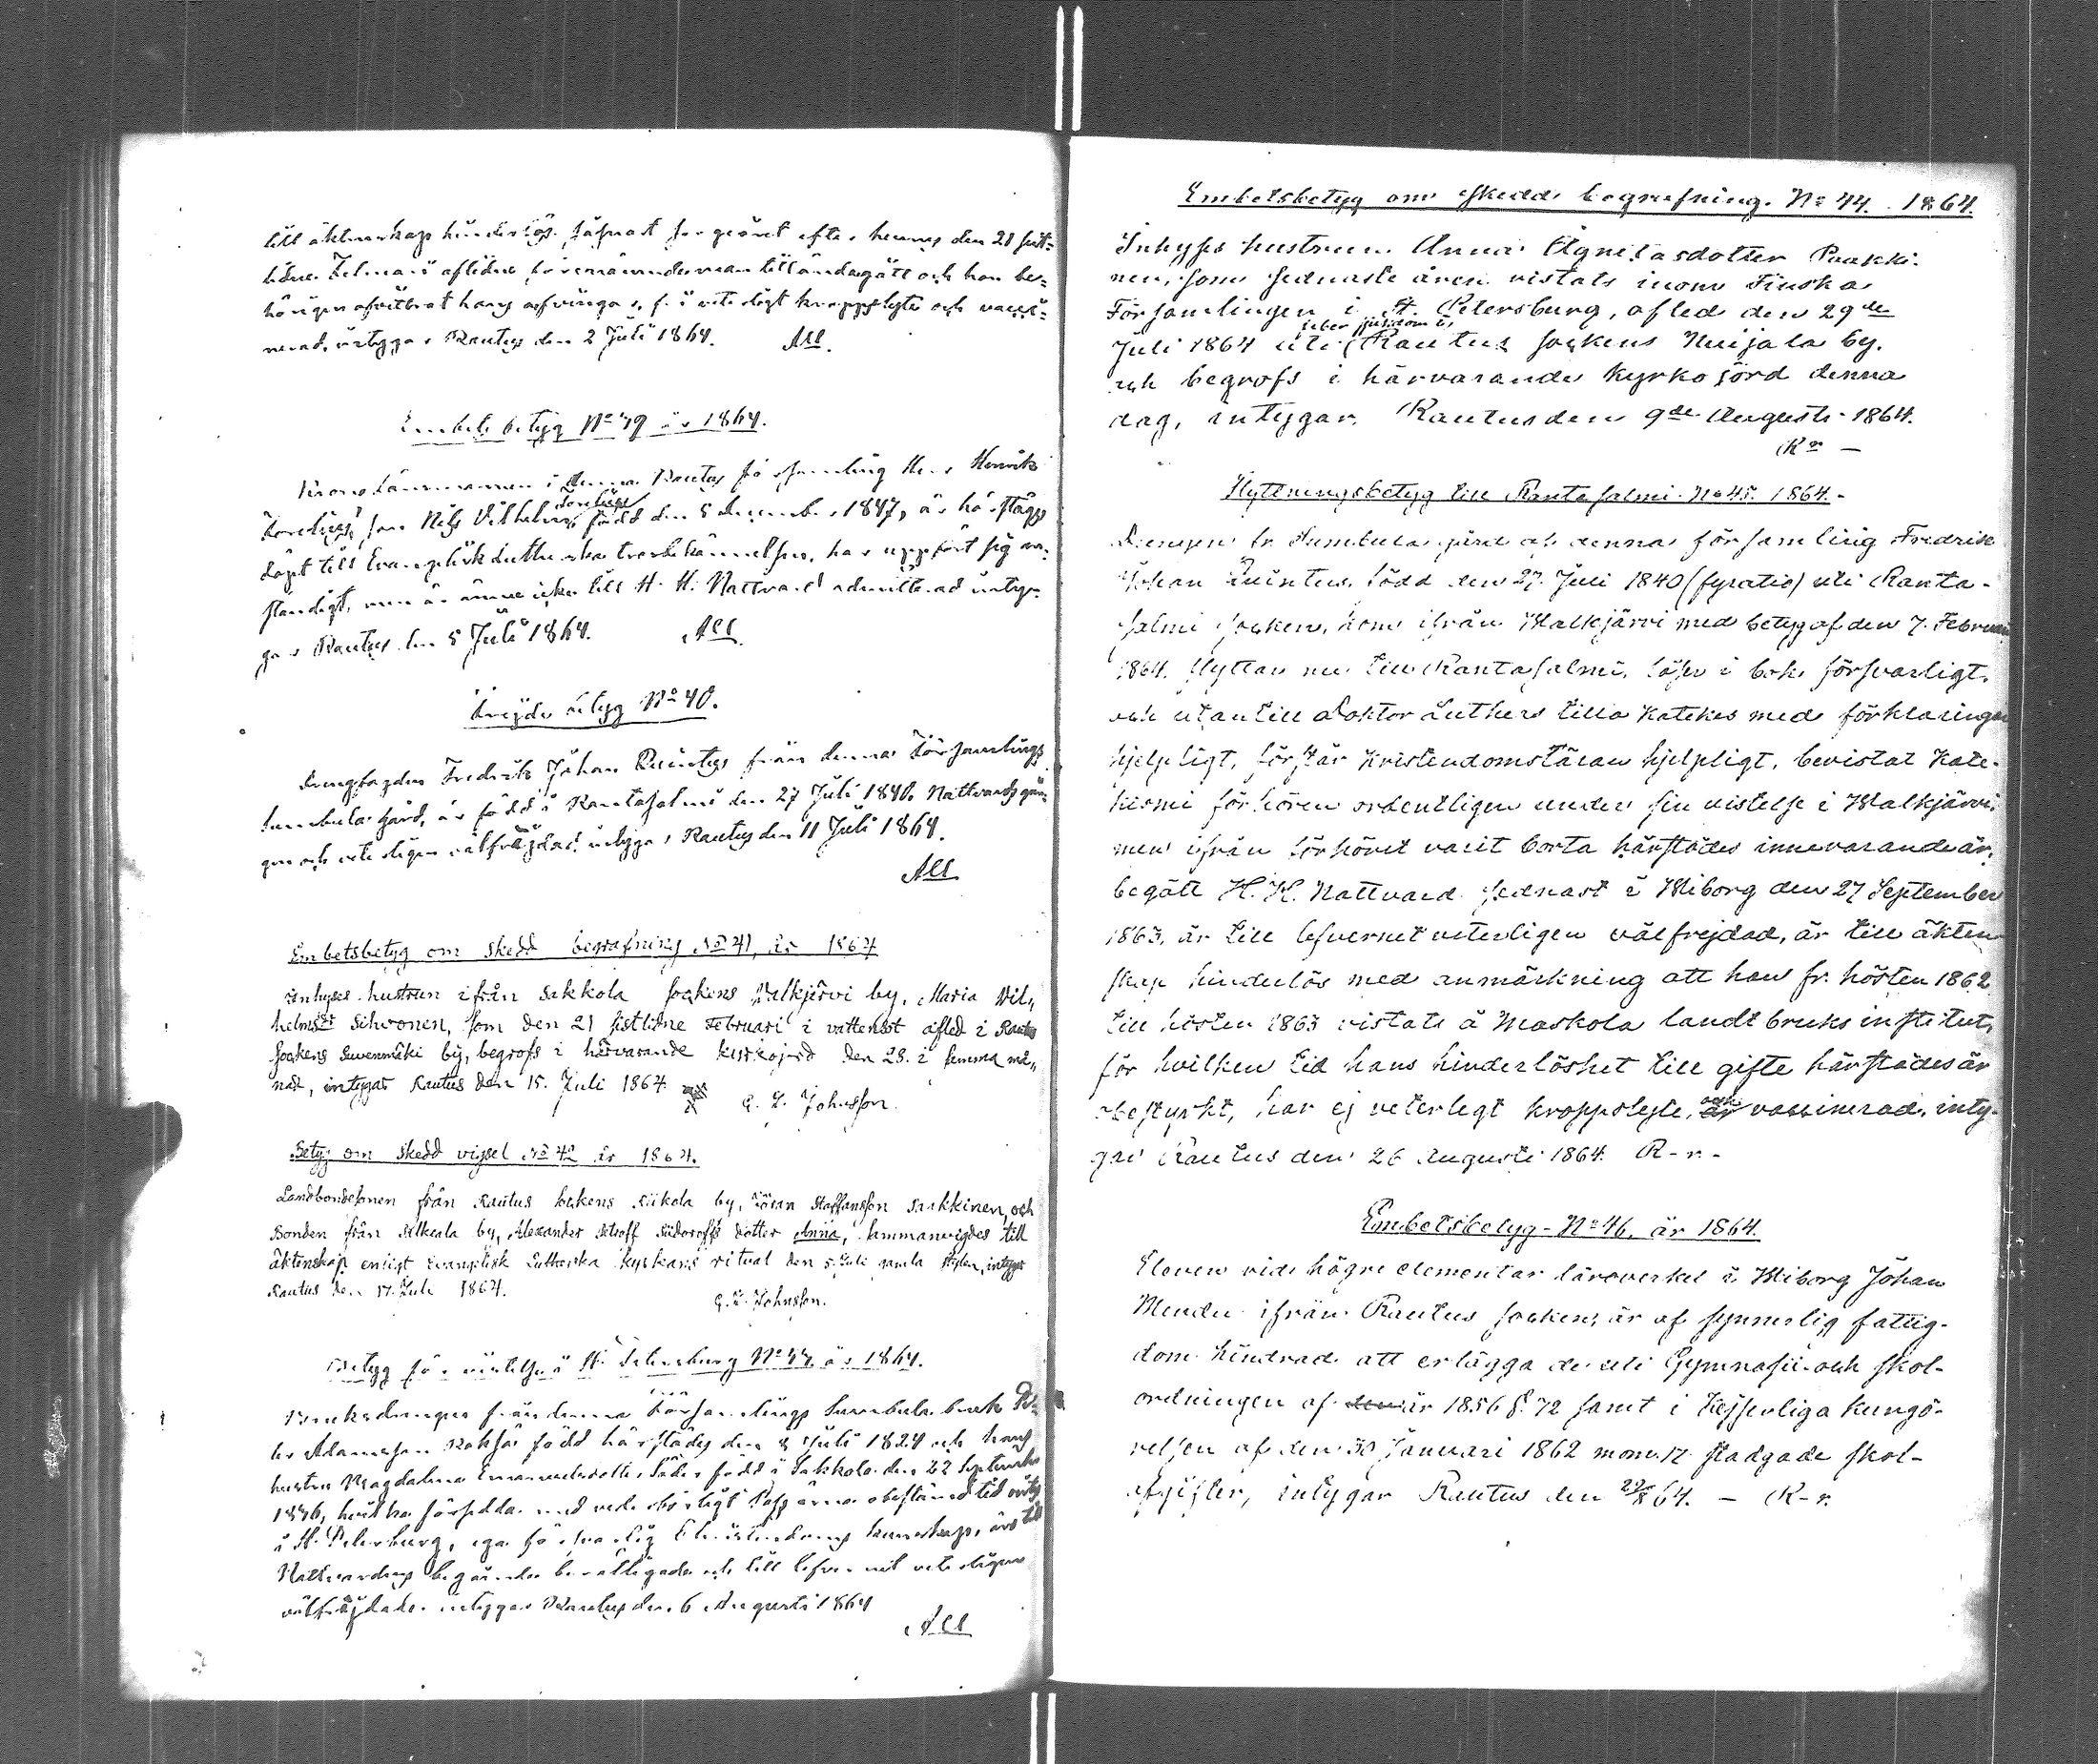 till äktenskap hinderlös, såsnart sorgeåret efter hennes den 21 sist-
lidne Februari aflidne förramännderman tilländagått och han be-
hörigen afvittrat hans arfvingar, fri veterligt kroppslyte och vacci-
nerad, intygar Rautus den 2 Juli 1864. All.
Embets betyg No 39 år 1864.
Kronolänsmannen i denna Rautus församling Herr Henrik
Forelius
son Nils Vilhelm född den 5 December 1847, är härstädes
döpt till Evangelisk Lutherska trosbekännelsen, har uppfört sig an-
ständigt, men är ännu icke till H. H. Nattvard admitterad intyg-
gar Rautus den 5 Juli 1864. All.
Frejde betyg No 40.
Drengfogden Fredrik Johan Quintus från denna Församlings
Sumbula Gård, är född i Rantasalmi den 27 Juli 1840. Nattvardsgån-
gen och veterligen välfräjdad, intygar Rautus den 11 Juli 1864.
All
Embetsbetyg om skedd begrafning No 41, år 1864
Inhyses hustrun ifrån Sakkola sockens Valkjärvi by, Maria Wil-
helmsdr Sihvonen, som den 21 sistlidne Februari i vattensot afled i Rautus
sockens Suvenmäki by, begrofs i härvarande kyrkojord den 28. i samma må-
nad, intygar Rautus den 15. Juli 1864 G. L. Johnsson.
Betyg om skedd vigsel No 42 år 1864.
Landbondesonen från Rautus sockens Riikola by, Göran Staffansson Saxkkinen, och
Bonden från Palkeala by, Alexander Petroff Sidoroffs dotter Anna, sammanvigdes till
äktenskap enligt Evangelisk Lutherska kyrkans ritual den 5 Juli gamla stylen, intygar
Rautus den 17. Juli 1864. G. L. Johnsson.
Betyg för vistelse i St. Petersburg No 43 år 1864.
Bruksdrengen från denna Församlings Sumbula bruk Pet-
ter Adamsson Koksa född härstädes den 8 Juli 1824 och hans
hustru Magdalena Emanuelsdotter född i Sakkola den 22 September
1826, hvilka försedda med vederbörligt Pass ärna obestämd tid vistas
i St. Petersburg, ega försvarlig Christendoms kunskap, äro till
Nattvardens begående berättigade och till lefvernet veterligen
välfräjdade. intygar Rautus den 6 Augusti 1864
All
Embetsbetyg om skedd begrafning. No 44. 1864.
Inhyses hustrun Anna Agnetasdotter Paakki-
nen, som sednaste åren vistats inom Finska
Församlingen i St. Petersburg, afled den 29de
feber sjukdom i
Juli 1864 uti Rautus sockens Nuijala by,
och begrofs i härvarande Kyrkojord denna
dag, intygar. Rautus den 9de Augusti 1864.
Rr —
Flyttningsbetyg till Rantasalmi No 45. 1864.-
Drengen fr. Sumbula gård af denna församling Fredrik
Johan Quintus, född den 27. Juli 1840 (fyratio) uti Ranta-
salmi socken, kom ifrån Walkjärvi med betyg af den 7. Februari
1864. flyttar nu till Rantasalmi, läser i bok försvarligt,
och utantill Doktor Luthers lilla Katekes med förklaringen
hjelpligt, förstår Kristendomsläran hjelpligt, bevistat Kate-
kismi förhören ordentligen under sin vistelse i Walkjärvi,
men ifrån förhöret varit borta härstädes innevarande år,
begått H. H. Nattvard sednast i Wiborg den 27 September
1863, är till lefvernet veterligen välfrejdad, är till äkten-
skap hinderlös med anmärkning att han fr. hösten 1862
till hösten 1863 vistats å Maskola landtbruksinstitut,
för hvilken tid hans hinderlöshet till gifte härstädes är
obestyrkt, har ej veterligt kroppslyte, och är vaccinerad, inty-
gar Rautus den 26 Augusti 1864. R-r.-
Embetsbetyg - No 46. år 1864.
Eleven vid högre elementar läroverket i Wiborg Johan
Mendu ifrån Rautus socken, är af synnerlig fattig-
dom hindrad att erlägga de uti Gymnasii- och skol-
ordningen af år 1856 §. 72 samt i Kejserliga kungö-
relsen af den 30 Januari 1862 mom. 17. stadgade skol-
afgifter, intygar Rautus den 29/8 64. — R-r.